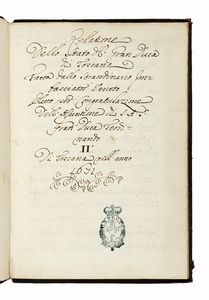 Relatione
Dello Stato del Gran Duca
di Toscana
Fatta dallo straordinario Im
basciator Veneto
Congratulatione
Dell' Assuntione di S.A.S.
Gran Duca Ferdi-
nando
II
Di Toscana nell' anno
1631